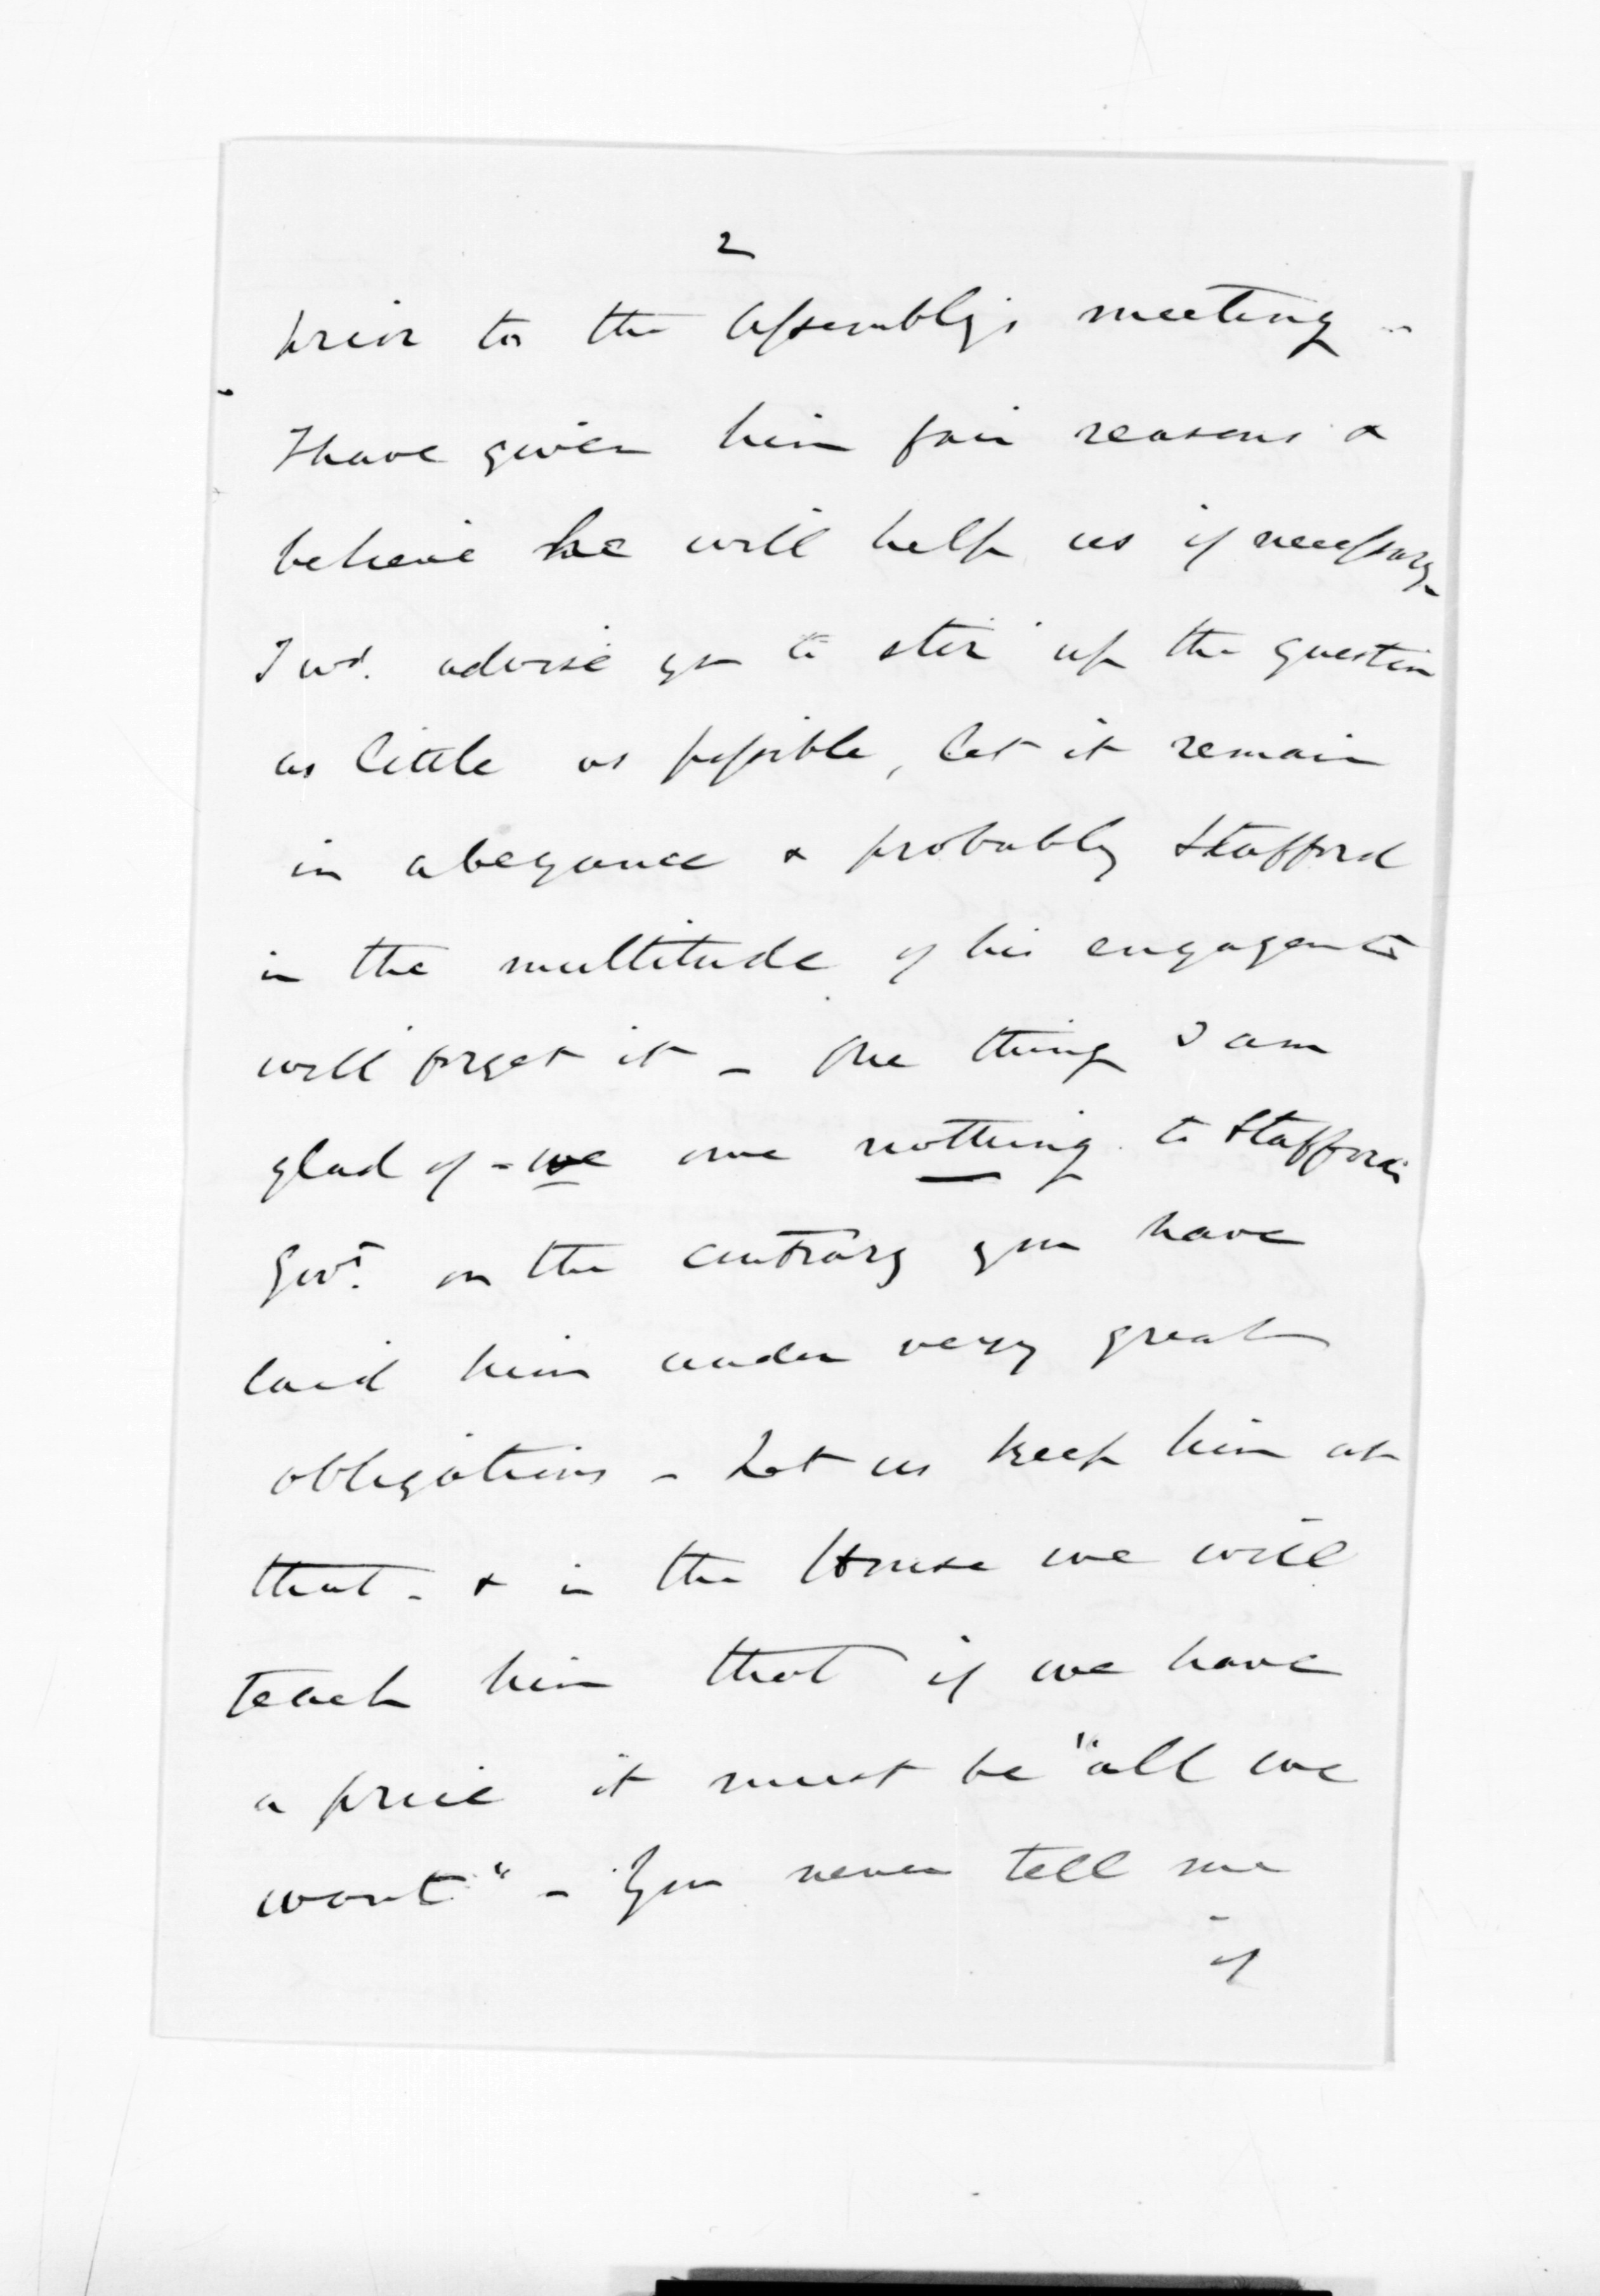 2
prior to the Assembly's meeting -
I have given him fair reasons &
believe he will help us if necessary
I wd. advise you to stir up the question
as little as possible, let it remain
in abeyance & probably Stafford
in the multitude of his engagemts
will forget it - One thing I am
glad of - we owe nothing to Stafford's
Govt. on the contrary you have
laid him under very great
obligations - Let us keep him at
that - & in the House we will
teach him that if we have
a price it must be "all we
want" - You never tell me
if